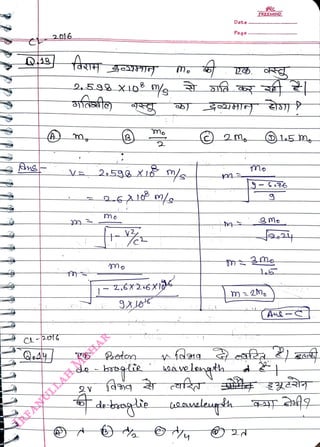 PRC
FREEMIND
Date
Page
CL-2016
Q.13 विराम द्रव्यमान m₀ की एक वस्तु
2.598 x10⁸ m/s से गति कर रही है।
गतिशील वस्तु का द्रव्यमान होगा ?
Ⓐ m₀ Ⓑ m₀/2 Ⓒ 2m₀ Ⓓ 1.5 m₀
Ans-
V = 2.598 x10⁸ m/s
= 2.6 x 10⁸ m/s
m = m₀/√(1 - V²/C²)
m = m₀/√(1 - 2.6x2.6x10¹⁶/9x10¹⁶)
m = m₀/√((9-6.76)/9)
m = 3m₀/√2.24
m = 3m₀/1.5
m = 2m₀
Ans-C
IRFANULLAH MISHAR
CL-2016
Q.14 एक प्रोटॉन v विभव से त्वरित है। इसकी
de-broglie wavelength λ है।
2v विभव से त्वरित
की de-broglie wavelength क्या होगी?
Ⓐ λ Ⓑ λ/2 Ⓒ λ/4 Ⓓ 2λ